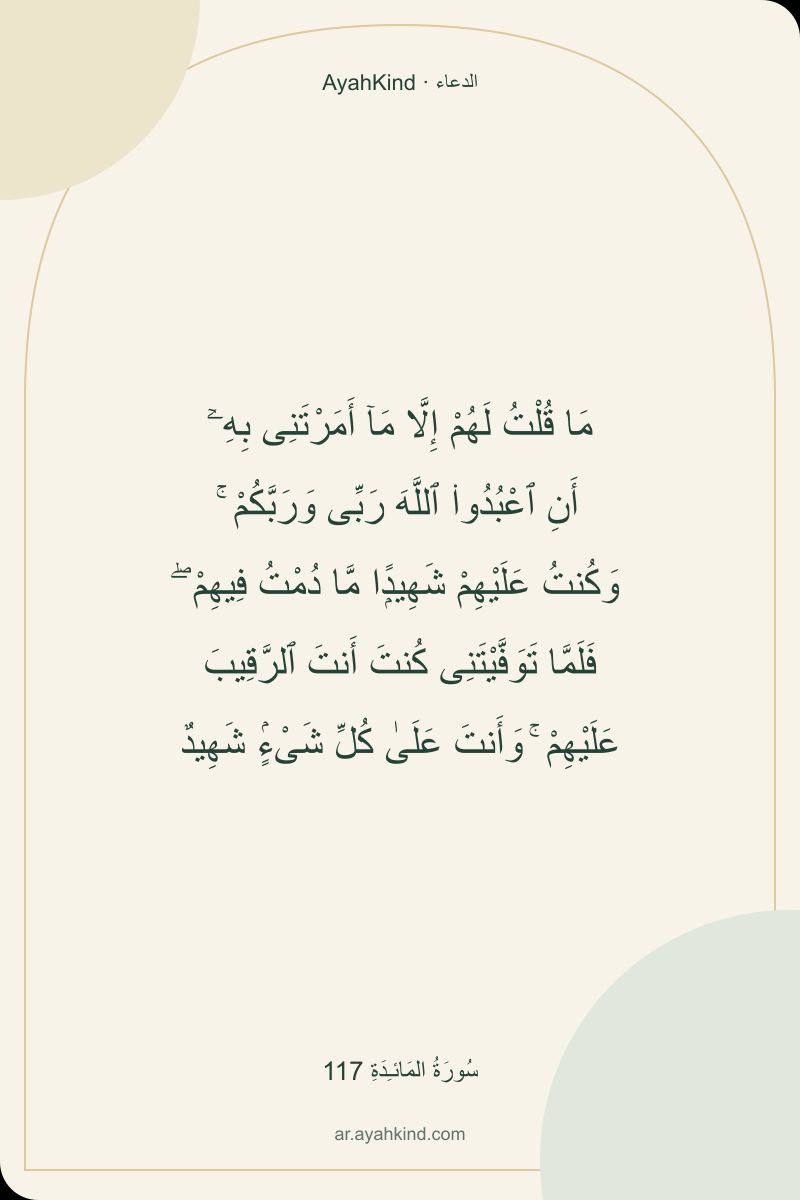 AyahKind · الدعاء
مَا قُلْتُ لَهُمْ إِلَّا مَآ أَمَرْتَنِى بِهِۦٓ
أَنِ ٱعْبُدُوا۟ ٱللَّهَ رَبِّى وَرَبَّكُمْ ۚ
وَكُنتُ عَلَيْهِمْ شَهِيدًۭا مَّا دُمْتُ فِيهِمْ ۖ
فَلَمَّا تَوَفَّيْتَنِى كُنتَ أَنتَ ٱلرَّقِيبَ
عَلَيْهِمْ ۚ وَأَنتَ عَلَىٰ كُلِّ شَىْءٍۢ شَهِيدٌ
سُورَةُ المَائـِدَةِ 117
ar.ayahkind.com